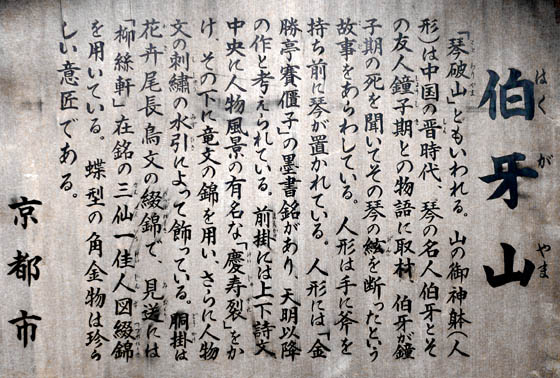 伯牙山
はくがやま
「琴破山」ともいわれる。山の御神躰(人
形)は中国の晋時代、琴の名人伯牙とそ
の友人鐘子期との物語に取材、伯牙が鐘
子期の死を聞いてその琴の絃を断ったという
故事をあらわしている。人形は手に斧を
持ち前に琴が置かれている。人形には「金
勝亭賽偃子」の墨書銘があり、天明以降
の作と考えられている。前掛には上下詩文
中央に人物風景の有名な「慶寿裂」をか
け、その下に竜文の錦を用い、さらに人物
文の刺繍の水引によって飾っている。胴掛は
花卉尾長鳥文の綴錦で、見送には
「柳絲軒」在銘の三仙一佳人図綴錦
を用いている。蝶型の角金物は珍ら
しい意匠である。
京都市